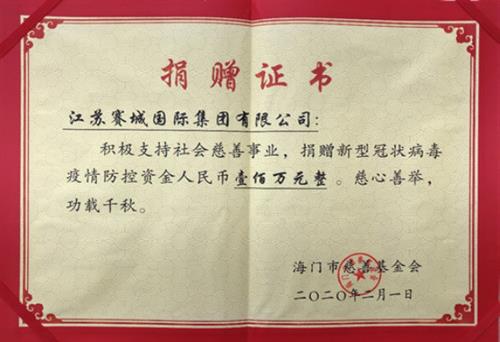 捐赠证书
江苏赛城国际集团有限公司:
积极支持社会慈善事业，捐赠新型冠状病毒
疫情防控资金人民币壹佰万元整。慈心善举，
功载千秋。
海门市慈善基金会
二〇二〇年二月一日